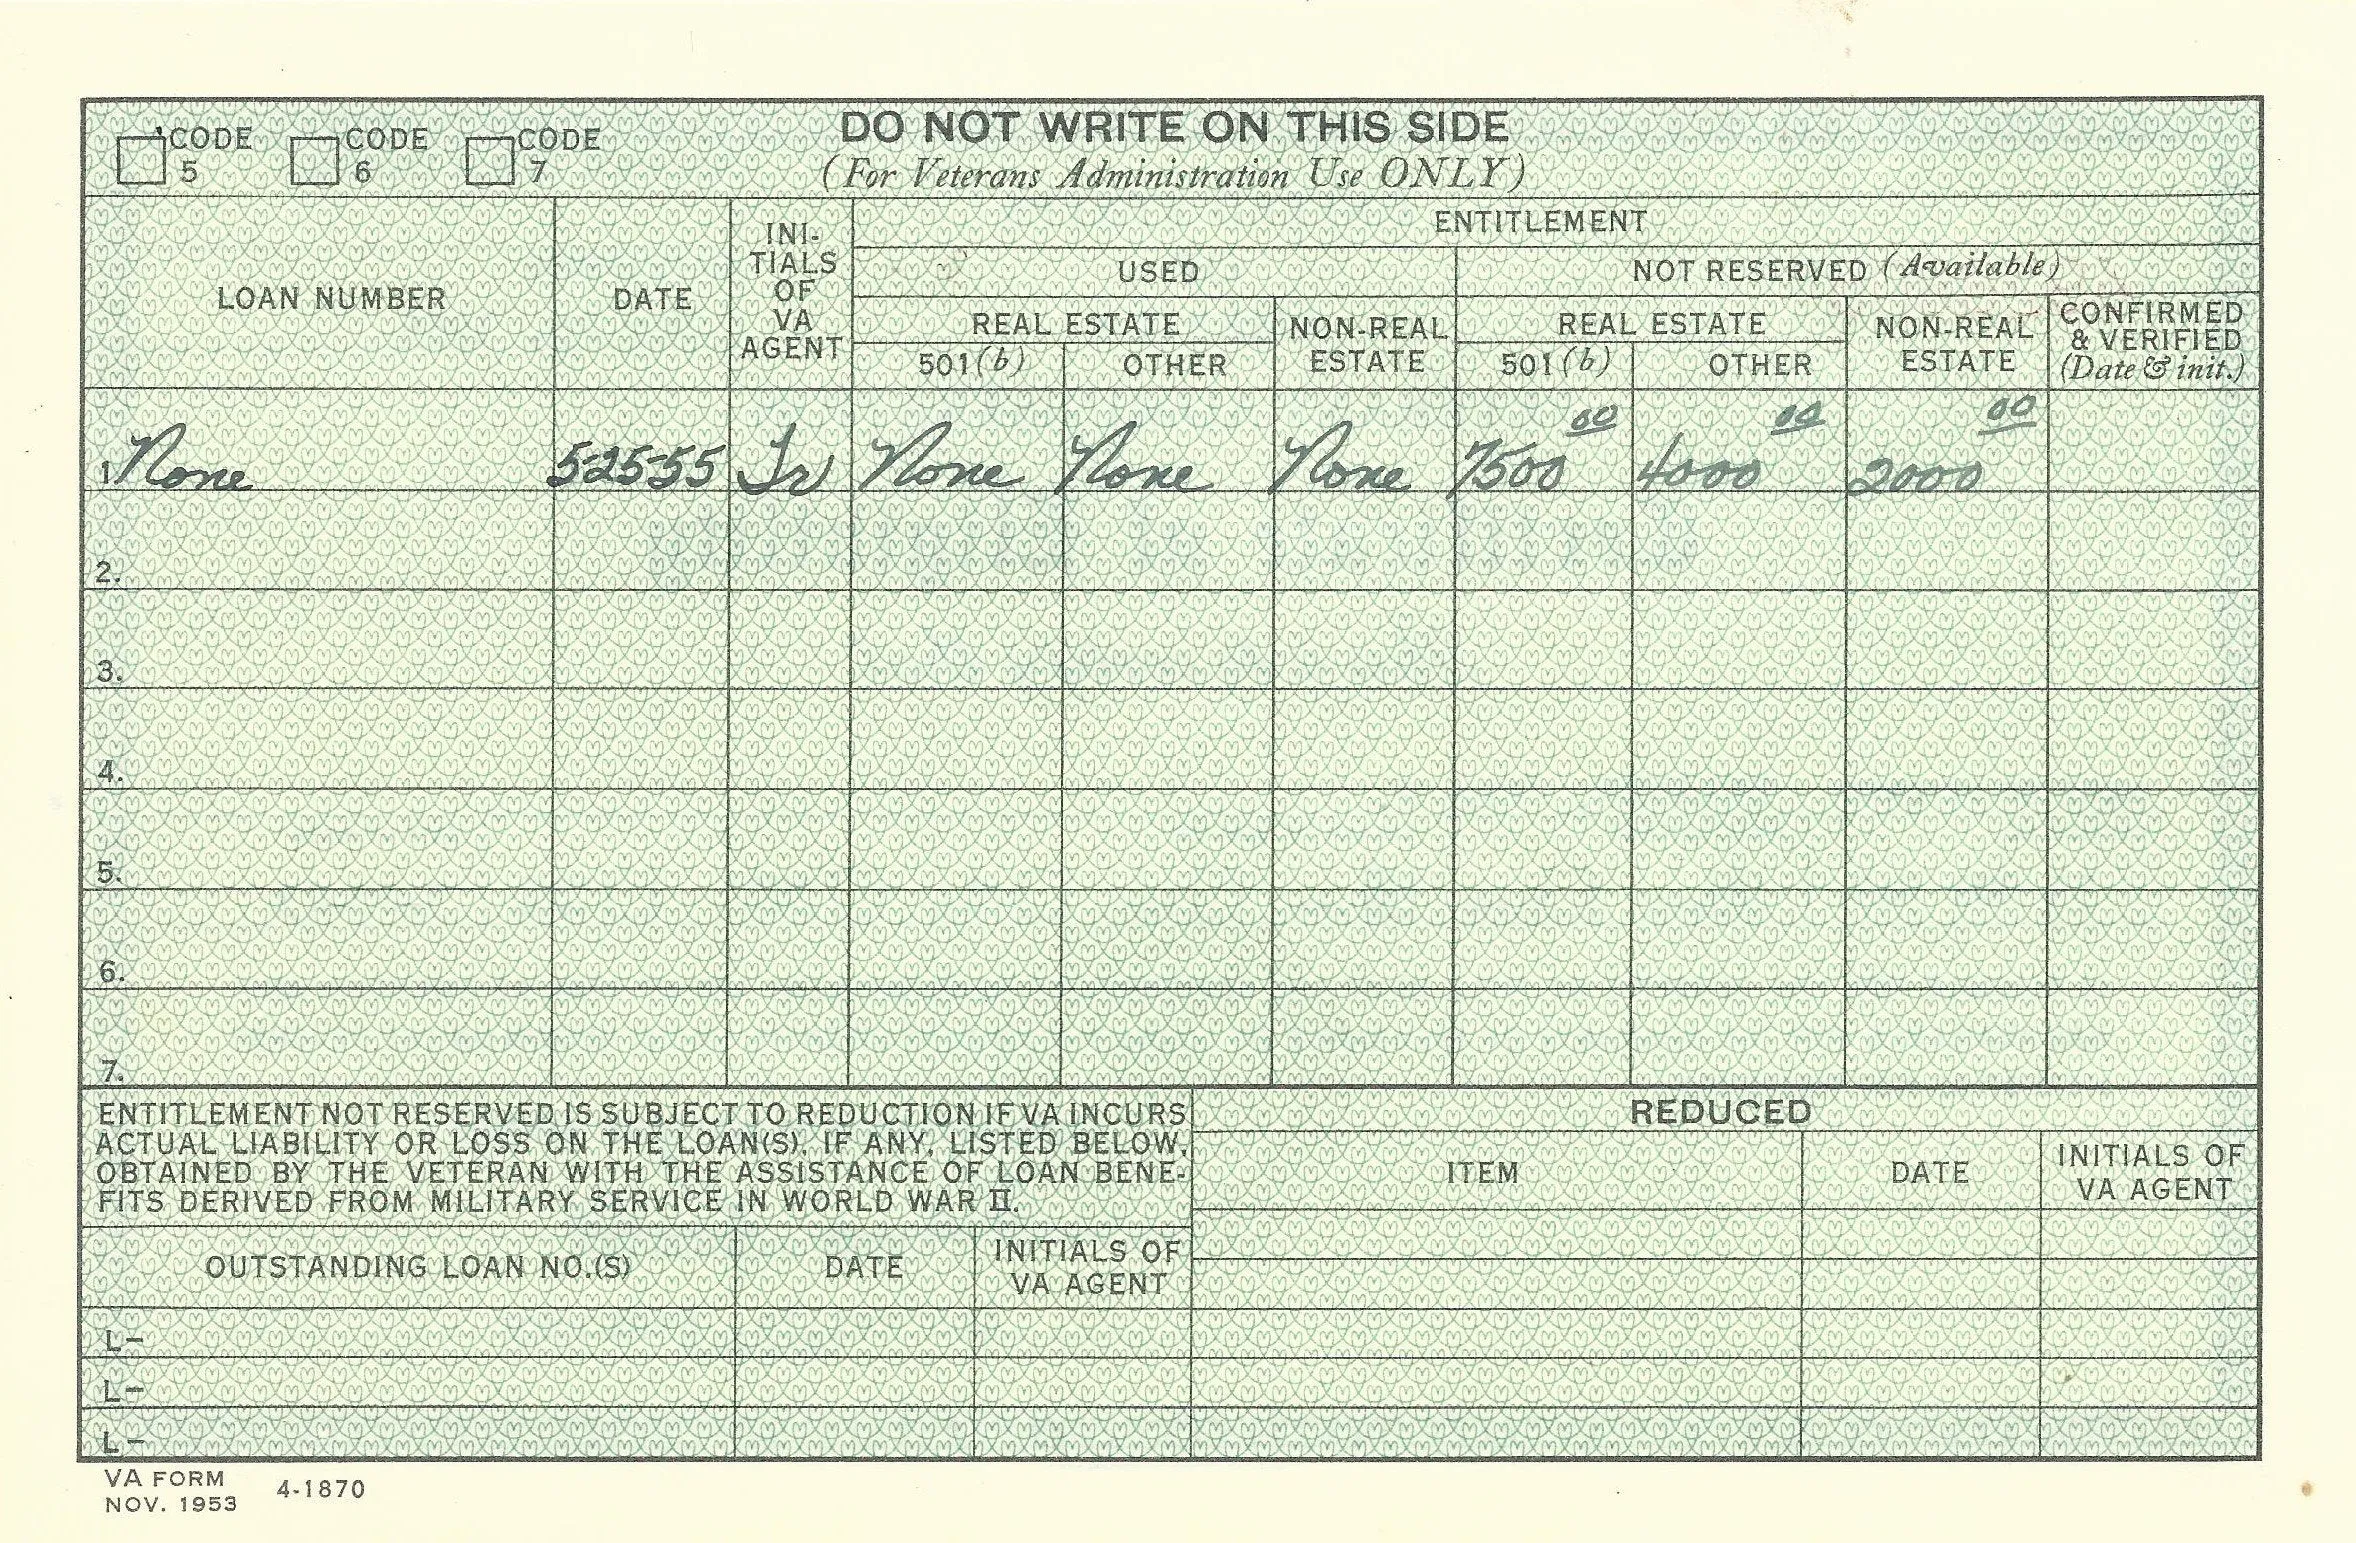 DO NOT WRITE ON THIS SIDE
☐ CODE 5 ☐ CODE 6 ☐ CODE 7
(For Veterans Administration Use ONLY)
ENTITLEMENT
LOAN NUMBER
DATE
INI-
TIALS
OF
VA
AGENT
USED
NOT RESERVED (Available)
REAL ESTATE
NON-REAL
ESTATE
REAL ESTATE
NON-REAL
ESTATE
CONFIRMED
& VERIFIED
(Date & init.)
501(b) OTHER 501(b) OTHER
1 None 5-25-55 None None None 7500 00 4000 00 2000 00
2.
3.
4.
5.
6.
7.
ENTITLEMENT NOT RESERVED IS SUBJECT TO REDUCTION IF VA INCURS
ACTUAL LIABILITY OR LOSS ON THE LOAN(S), IF ANY, LISTED BELOW,
OBTAINED BY THE VETERAN WITH THE ASSISTANCE OF LOAN BENE-
FITS DERIVED FROM MILITARY SERVICE IN WORLD WAR II.
OUTSTANDING LOAN NO.(S)
DATE
INITIALS OF
VA AGENT
L-
L-
L-
REDUCED
ITEM
DATE
INITIALS OF
VA AGENT
VA FORM
NOV. 1953
4-1870